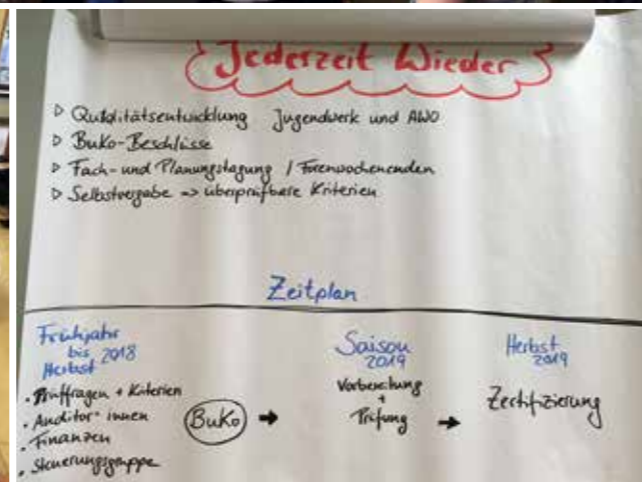 Jederzeit Wieder
▷ Qualitätsentwicklung Jugendwerk und AWO
▷ BuKo-Beschlüsse
▷ Fach- und Planungstagung / Forenwochenenden
▷ Selbstvergabe => überprüfbare Kriterien
Zeitplan
Frühjahr
bis 2018
Herbst
• Prüffragen + Kriterien
• Auditor*innen
• Finanzen
• Steuerungsgruppe
BuKo →
Saison
2019
Vorbereitung
+
Prüfung →
Herbst
2019
Zertifizierung